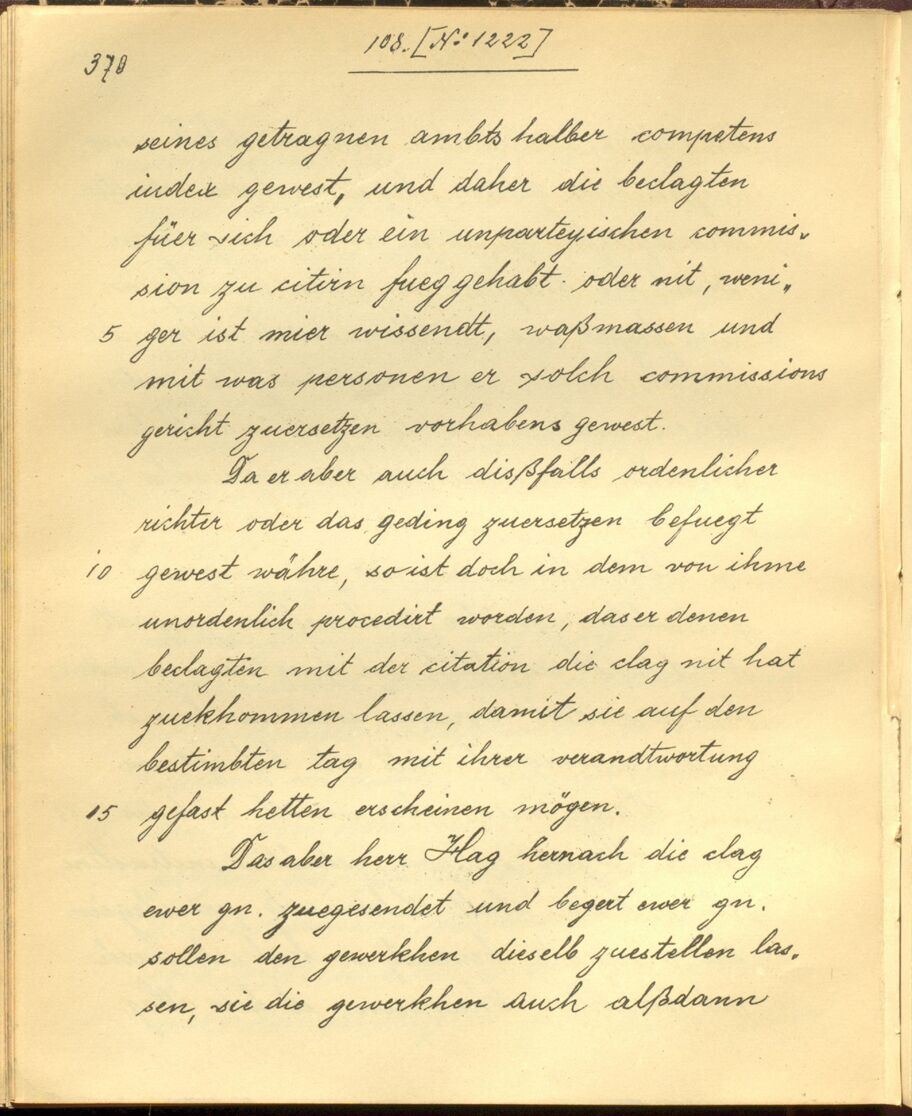 108. [No: 1222]
370
seines getragnen ambts halber competens
iudex gewest, und daher die beclagten
füer sich oder ein unparteyischen commis„
sion zu citirn fueg gehabt oder nit, weni„
5 ger ist mier wissendt, waßmassen und
mit was personen er solch commissions
gericht zuersetzen vorhabens gewest.
Da er aber auch disßfalls ordenlicher
richter oder das geding zuersetzen befuegt
10 gewest währe, so ist doch in dem von ihme
unordenlich procedirt worden, das er denen
beclagten mit der citation die clag nit hat
zuekhommen lassen, damit sie auf den
bestimbten tag mit ihrer verandtwortung
15 gefast hetten erscheinen mögen.
Das aber herr Hag hernach die clag
ewer gn. zuegesendet und begert ewer gn.
sollen den gewerkhen dieselb zuestellen las„
sen, sie die gewerkhen auch alßdann